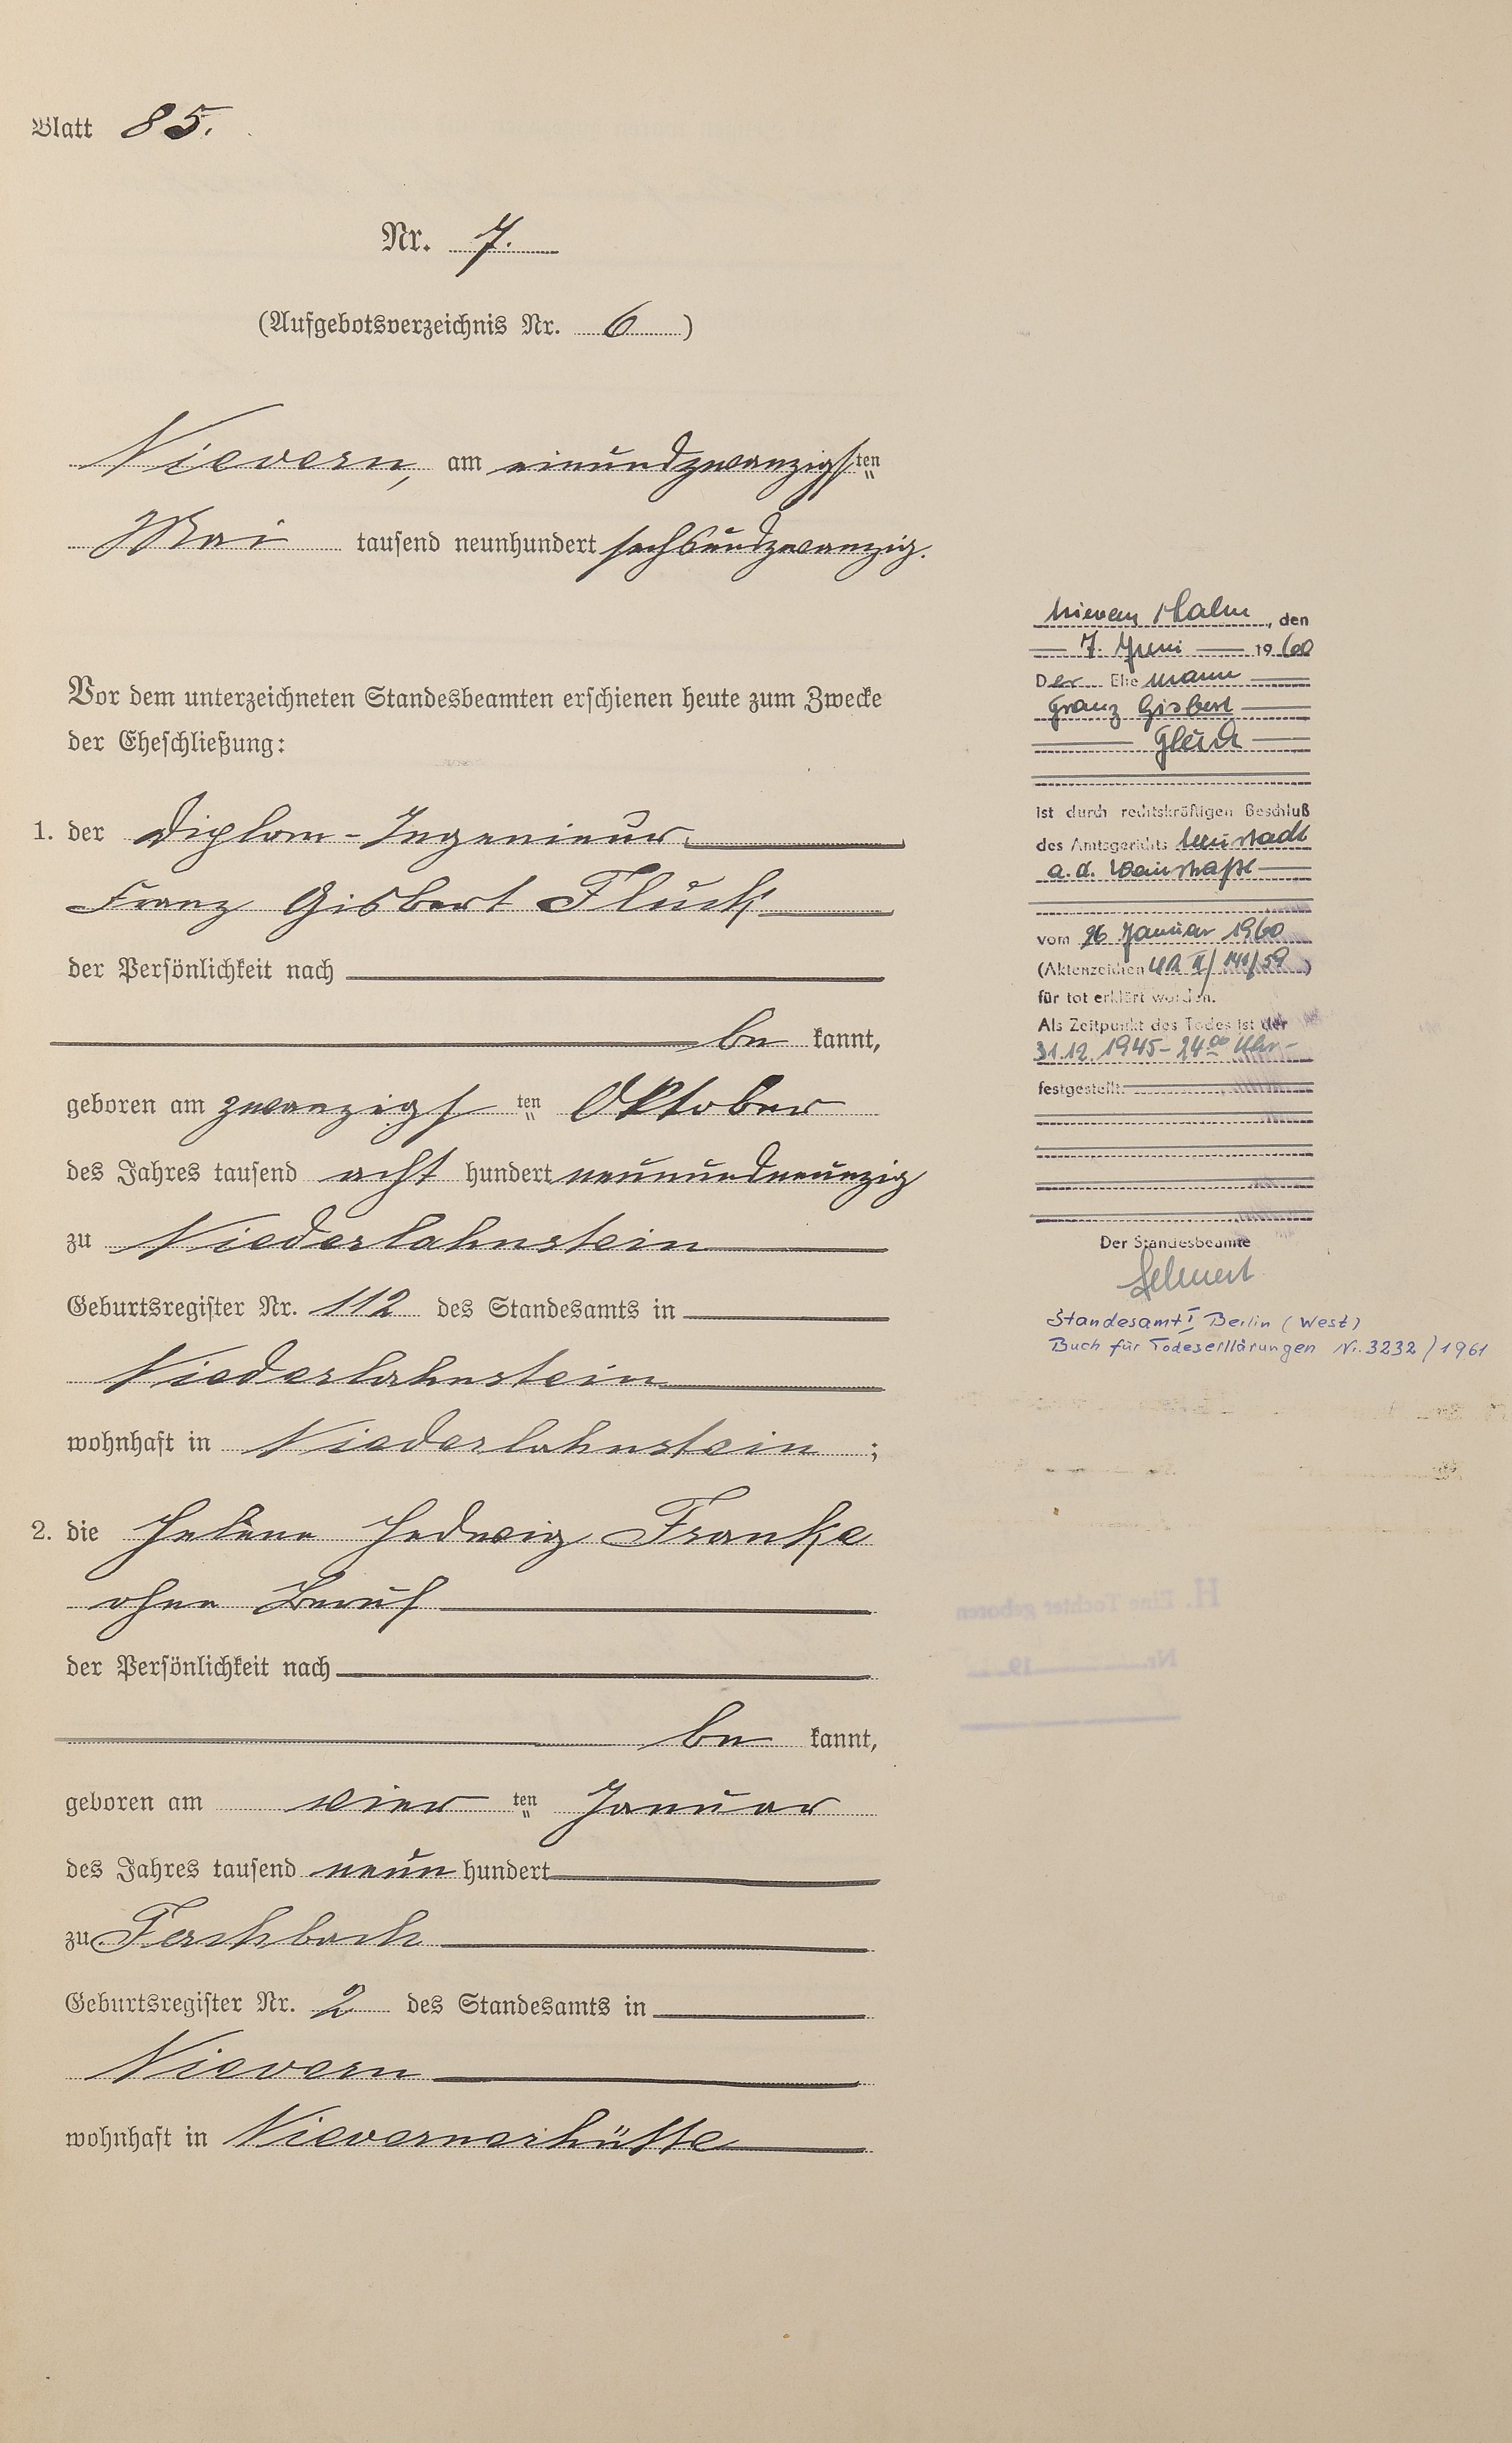 Blatt 85.
Nr. 7.
(Aufgebotsverzeichnis Nr. 6)
Nievern, am einundzwanzigsten
Mai tausend neunhundert sechsundzwanzig.
Vor dem unterzeichneten Standesbeamten erschienen heute zum Zwecke
der Eheschließung:
1. der Diplom-Ingenieur
Franz Gisbert Fluck
der Persönlichkeit nach
be kannt,
geboren am zwanzigsten Oktober
des Jahres tausend acht hundert neunundneunzig
zu Niederlahnstein
Geburtsregister Nr. 112 des Standesamts in
Niederlahnstein
wohnhaft in Niederlahnstein;
2. die Helene Hedwig Franke
ohne Beruf
der Persönlichkeit nach
be kannt,
geboren am vierten Januar
des Jahres tausend neun hundert
zu Fachbach
Geburtsregister Nr. 2 des Standesamts in
Nievern
wohnhaft in Nievernerhütte
Nievern, den
7. Juni 1960
Der Ehemann
Franz Gisbert
Fluck
ist durch rechtskräftigen Beschluß
des Amtsgerichts Neustadt
a.d. Weinstraße
vom 26 Januar 1960
(Aktenzeichen UR II/141/59)
für tot erklärt worden.
Als Zeitpunkt des Todes ist der
31.12.1945 - 24 00 Uhr -
festgestellt
Der Standesbeamte
Standesamt I Berlin (West)
Buch für Todeserklärungen Nr. 3232/1961
H. Eine Tochter geboren
Nr. 19